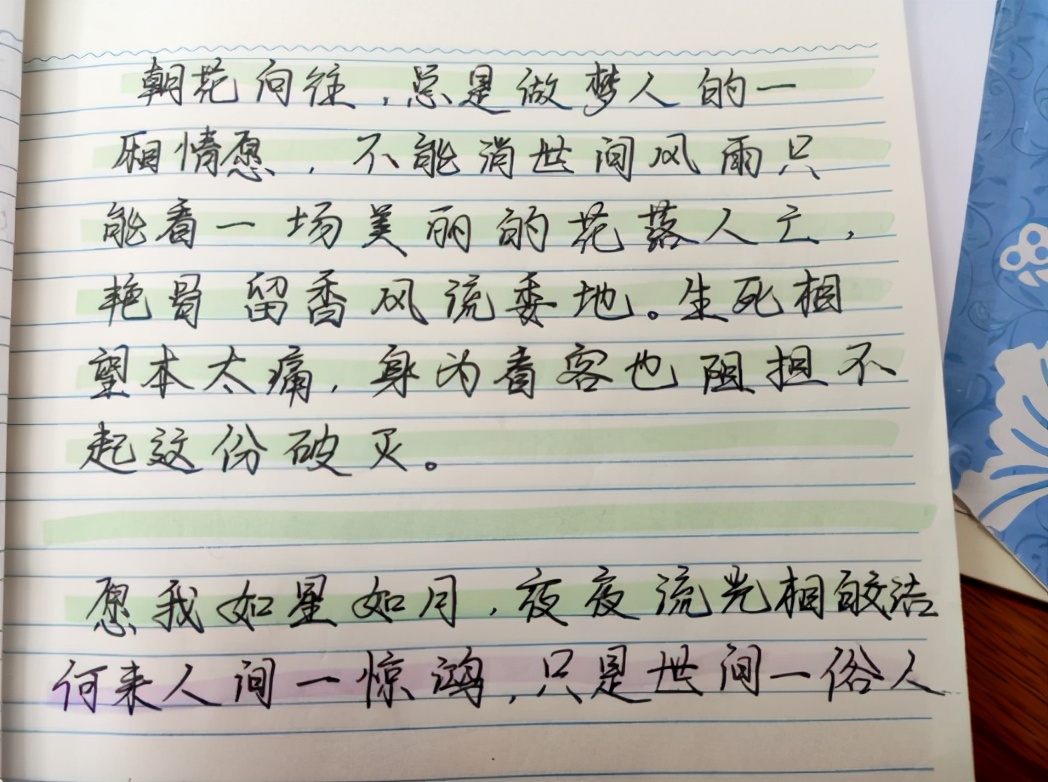 朝花向往，总是做梦人的一
厢情愿，不能消世间风雨只
能看一场美丽的花落人亡，
艳骨留香风流委地。生死相
望本太痛，身为看客也阻担不
起这份破灭。
愿我如星如月，夜夜流光相皎洁
何来人间一惊鸿，只是世间一俗人